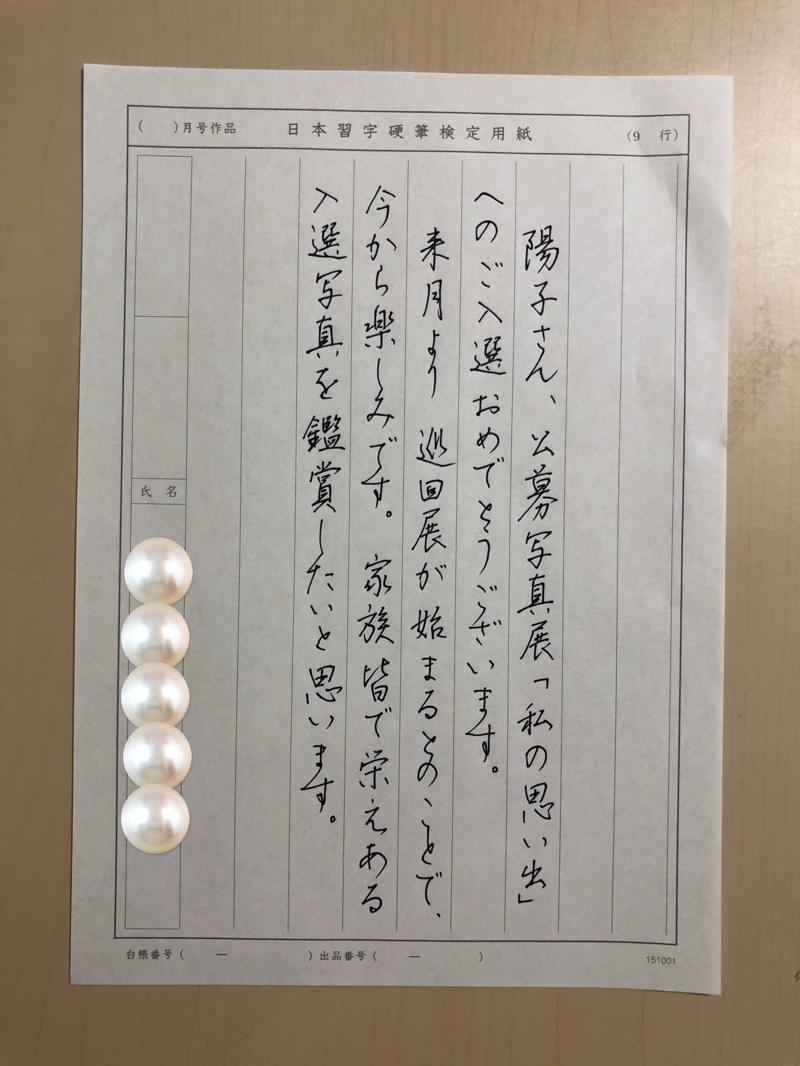 (　　)月号作品　日本習字硬筆検定用紙　(9　行)
陽子さん、公募写真展「私の思い出」
へのご入選おめでとうございます。
来月より巡回展が始まるとのことで、
今から楽しみです。家族皆で栄えある
入選写真を鑑賞したいと思います。
氏名
台帳番号(　　―　　　　)出品番号(　　―　　　　)
151001